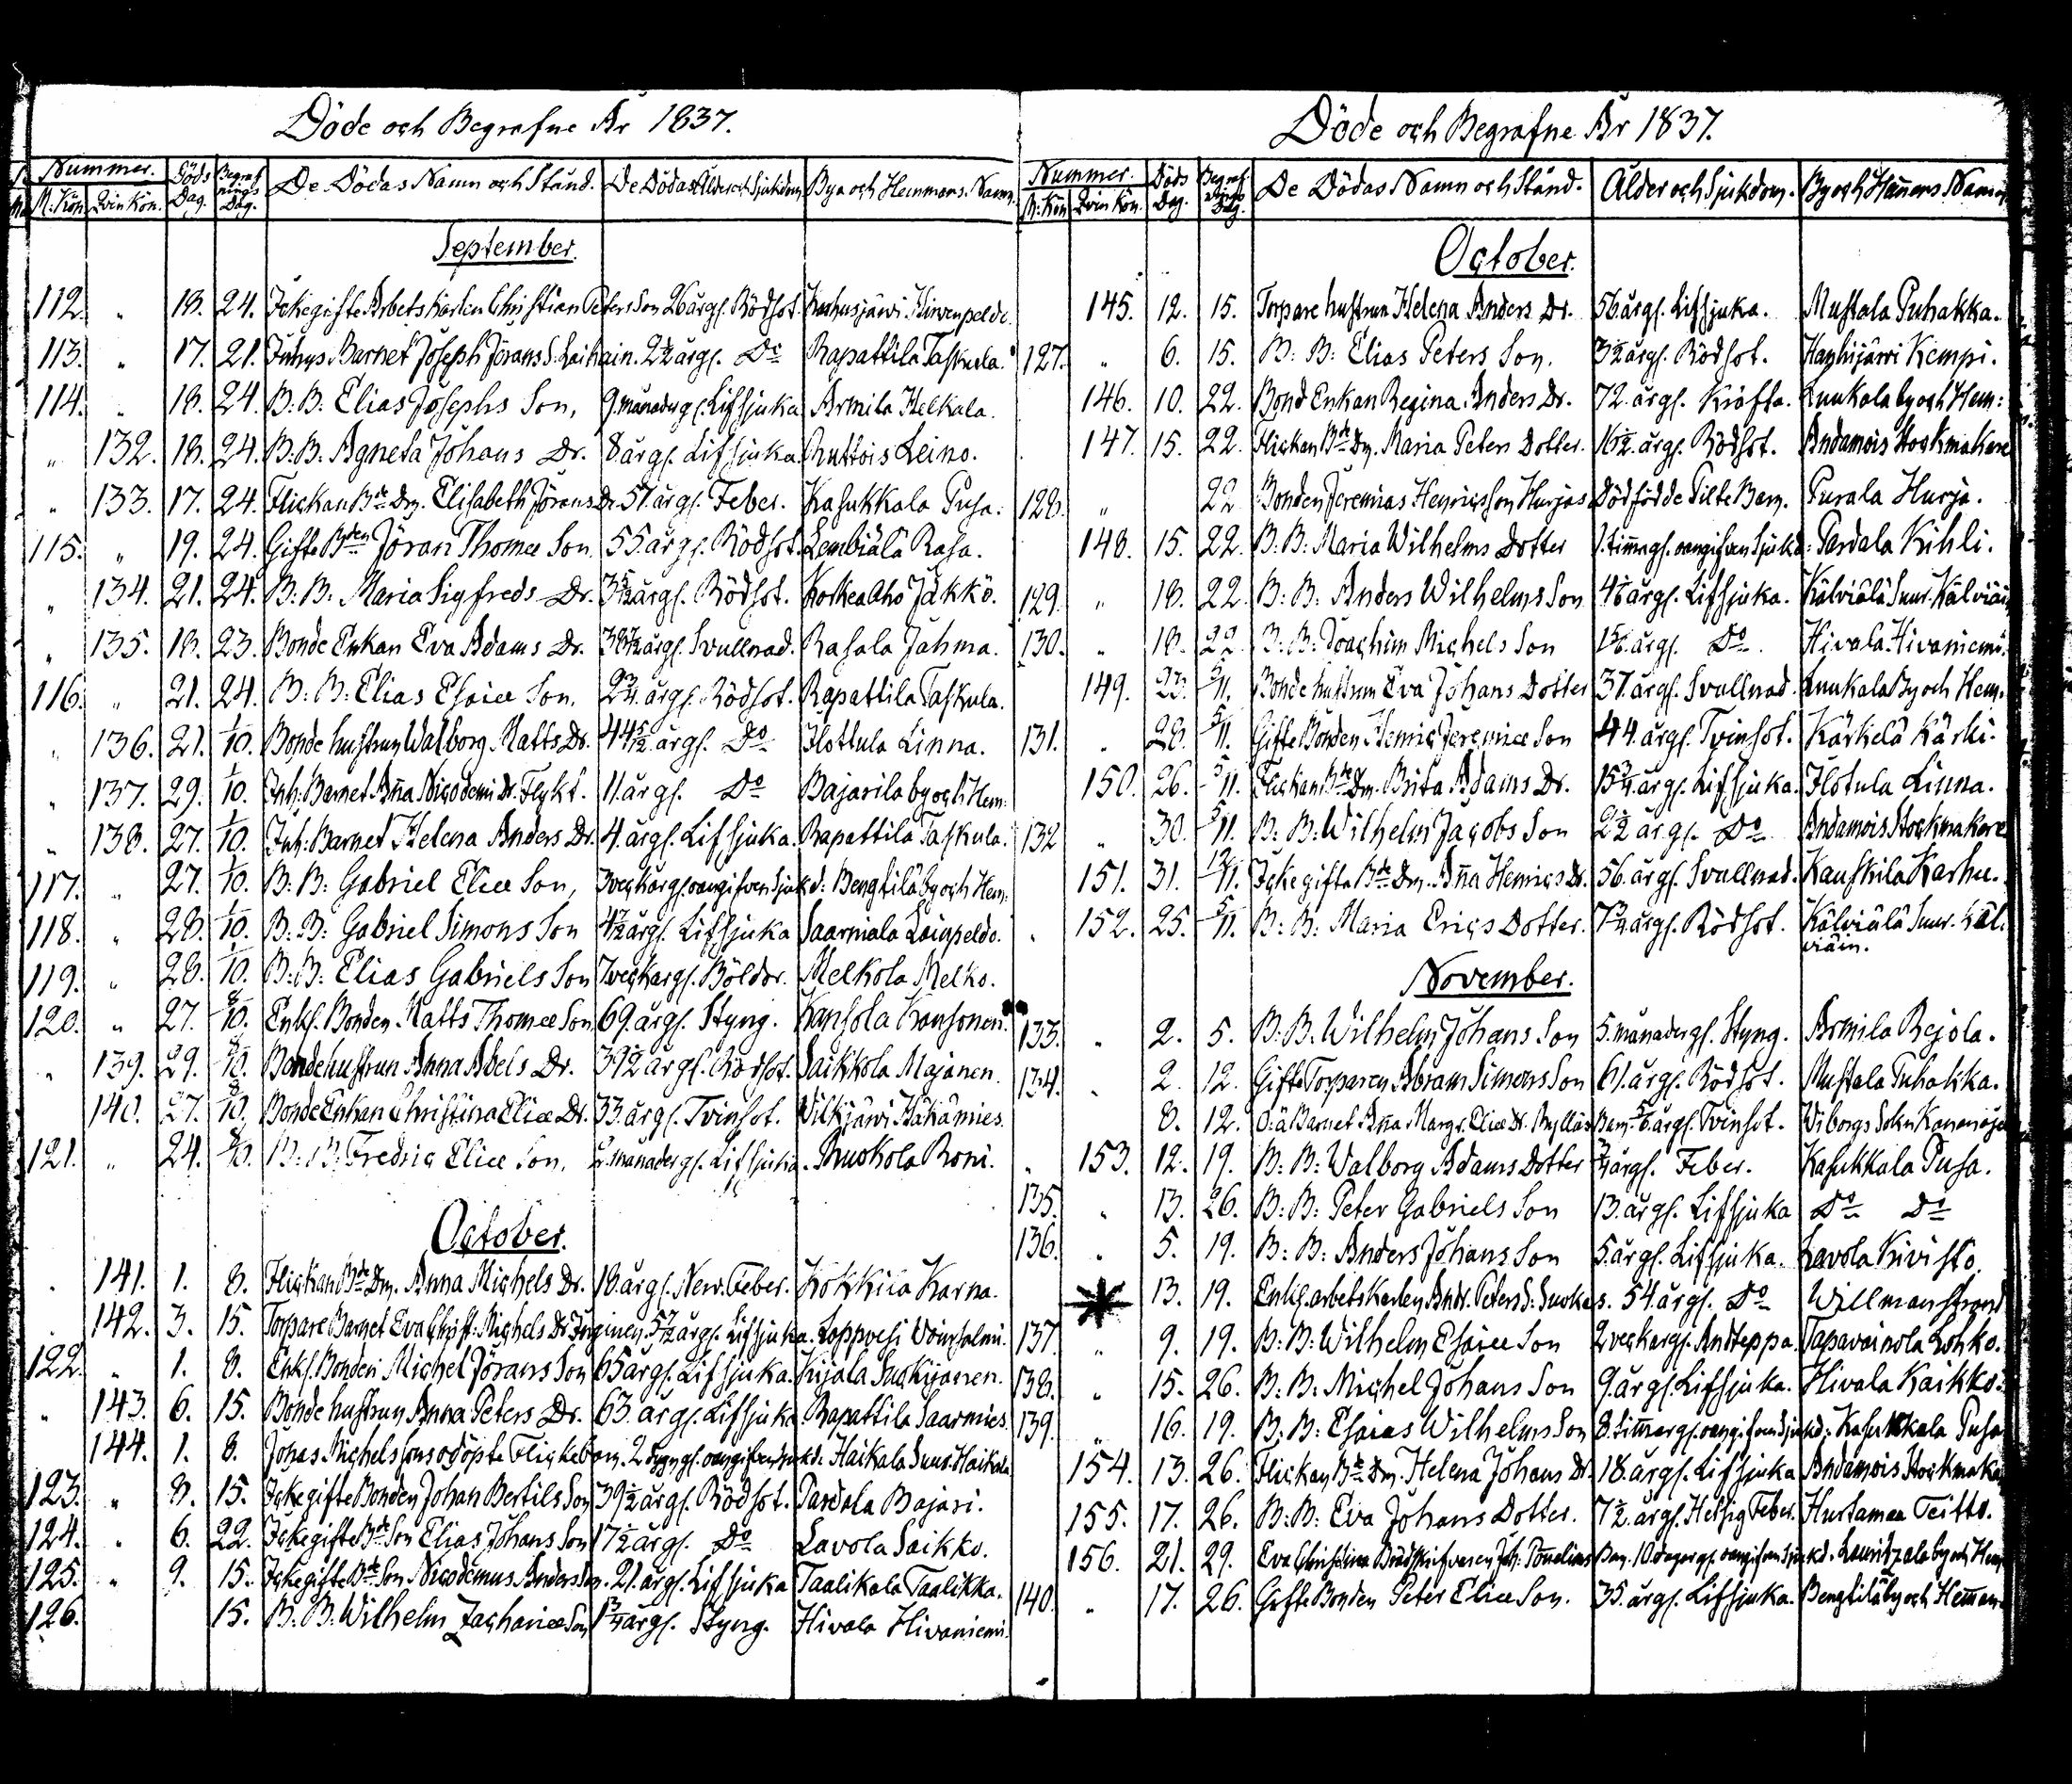 Döde och Begrafne År 1837.
Nummer. Döds Dag. Begrafnings Dag. De Dödas Namn och Stånd. De Dödas Ålder och Sjukdom. Bya och Hemmans Namn.
M: Kön Qvin Kön.
September.
112. " 18. 24. Ickegifte Arbets karlen Christian Peters Son 26 årgl. Rödsot. Hirvenpelde.
113. " 17. 21. Inhys Barnet Joseph Jörans S. Laikain. 2½ årgl. Do Rapattila Taskula.
114. " 18. 24. B: B: Elias Josephs Son, 9. månadergl. Lifsjuka Armila Helkala.
" 132. 18. 24. B: B: Agneta Johans Dr. 8 årgl. Lifsjuka. Ruttois Leino.
" 133. 17. 24. Flickan Bde Dm. Elisabeth Jörans Dr. 51. årgl. Feber. Kasukkala Pusa.
115. " 19. 24. Gifte Bden Jöran Thomæ Son. 55. årgl. Rödsot. Lembiälä Rasa.
" 134. 21. 24. B: B: Maria Sigfreds Dr. 3 5/12 årgl. Rödsot. Korkea Aho Jäkkö.
" 135. 18. 23. Bonde Enkan Eva Adams Dr. årgl. Svullnad. Rasala Jahma.
116. " 21. 24. B: B: Elias Esaiæ Son. 2¾ årgl. Rödsot. Rapattila Taskula.
" 136. 21. 1/10. Bonde hustrun Walborg Matts Dr. 44 5/12 årgl. Do Ilottula Linna.
" 137. 29. 1/10. Inh: Barnet Aña Nicodemi Dr. Flykt. 11. årgl. Do Bajarila by och Hem:
" 138. 27. 1/10. Inh: Barnet Helena Anders Dr. 4. årgl. Lifsjuka. Rapattila Taskula.
117. " 27. 1/10. B: B: Gabriel Eliæ Son, 3 veckor gl. oangifven Sjukd: Bengtilä by och Hem:
118. " 28. 1/10. B: B: Gabriel Simons Son 4½ årgl. Lifsjuka Saarmala Loinpeldo.
119. " 28. 1/10. B: B: Elias Gabriels Son 7 veckor gl. Böldor. Melkola Melko.
120. " 27. 8/10. Enkl. Bonden Matts Thomæ Son 69. årgl. Styng. Kansola Kansonen.
" 139. 29. 8/10. Bonde hustrun Anna Abels Dr. 39½ årgl. Rödsot. Saikkola Majanen.
140. 27. 8/10. Bonde Enkan Christina Eliæ Dr. 33. årgl. Tvinsot. Vilkjärvi Häkämies.
121. " 24. 8/10. B: B: Fredric Eliæ Son. 2. månader gl. Lifsjuka. Ruokola Roni.
October.
141. 1. 8. Flickan Bde Dm. Anna Michels Dr. 18. årgl. Nerv. Feber. Kokkiia Karna.
142. 3. 15. Torpare Barnet Eva Christ: Michels Dr. 5½ årgl. Lifsjuka. Loppvesi
122. " 1. 8. Enkl. Bonden Michel Jörans Son 65 årgl. Lifsjuka. Kijala Suckijanen.
" 143. 6. 15. Bonde hustrun Anna Peters Dr. 63. årgl. Lifsjuka Rapattila Saarmies.
144. 1. 8. Johas Michelssons odöpte Flickebarn. 2 dygn gl. oangifven Sjukd: Haikala Suur-Haikala
123. " 8. 15. Ickegifte Bonden Johan Bertils Son 39½ årgl. Rödsot. Pardala Bajari.
124. " 6. 22. Ickegifte Bde Son Elias Johans Son 17½ årgl. Do Lavola Saikko.
125. " 9. 15. Ickegifte Bde Son Nicodemus Anders Son. 21. årgl. Lifsjuka Taalikala Taalikka.
126. 15. B: B: Wilhelm Zachariæ Son 1¾ årgl. Styng. Hivala Hivaniemi.
Döde och Begrafne År 1837.
Nummer. Döds Dag. Begrafnings Dag. De Dödas Namn och Stånd. Ålder och Sjukdom. By och Hemmans Namn.
M: Kön Qvin Kön.
October.
145. 12. 15. Torpare hustrun Helena Anders Dr. 56 årgl. Lifsjuka. Mustala Puhakka.
127. " 6. 15. B: B: Elias Peters Son. 3½ årgl. Rödsot. Hanhijärvi Kempi.
146. 10. 22. Bond Enkan Regina Anders Dr. 72. årgl. Kräfta. Luukala by och Hem:
147. 15. 22. Flickan Bde Dm. Maria Peters Dotter. 16½. årgl. Rödsot. Andamois Stockmakare
128. " 22 Bonden Jeremias Henricsson Hurjas Dödfödde Pilte Barn. Purala Hurja.
148. 15. 22. B: B: Maria Wilhelms Dotter 1. timagl. oangifven Sjukd: Pardala Kihli.
129. " 18. 22. B: B: Anders Wilhelms Son årgl. Lifsjuka. Kälviälä Suur-Kälviäin
130. " 18. 22. B: B: Joachim Michels Son årgl. Do Hivala Hivaniemi.
149. 23. 5/11. Bonde hustrun Eva Johans Dotter 37. årgl. Svullnad. Luukala By och Hem.
131. " 28. 5/11. Gifte Bonden Henric Jeremiæ Son 44. årgl. Tvinsot. Kärkelä Kärki.
150. 26. 5/11. Flickan Bde Dm. Brita Adams Dr. 15¾. årgl. Lifsjuka. Ilotula Linna.
132 " 30. 5/11. B: B: Wilhelm Jacobs Son 2½ årgl. Do Andamois Stockmakare
151. 31. 12/11. Ickegifta Bde Dm. Aña Henrics Dr. 56. årgl. Svullnad. Kauskila Karhu.
" 152. 25. 5/11. B: B: Maria Erics Dotter. 7¾ årgl. Rödsot. Kälviälä Suur-Käl-
viäin.
November.
133. " 2. 5. B: B: Wilhelm Johans Son 5. månader gl. Styng. Armila Rejola.
134. " 2. 12. Gifte Torparen Abram Simons Son 61. årgl. Rödsot. Mustala Puhakka.
8. 12. O: ä: Barnet Aña Margr. Eliæ Dr. årgl. Tvinsot. Wiborgs Sokn Kananoja
" 153. 12. 19. B: B: Valborg Adams Dotter ¾ årgl. Feber. Kasukkala Pusa.
135. " 13. 26. B: B: Peter Gabriels Son 13. årgl. Lifsjuka Do Do
136. " 5. 19. B: B: Anders Johans Son 5. årgl. Lifsjuka. Lavola Kivistö.
13. 19. Enkl. arbetskarlen Andr. Peters S: Suokas. 54. årgl. Do Willmanstrand
137. " 9. 19. B: B: Wilhelm Esaiæ Son 2 veckor gl. Andteppa. Tapavainola Lohko.
138. " 15. 26. B: B: Michel Johans Son 9. årgl. Lifsjuka. Hivala Kaikko.
139. " 16. 19. B: B: Esaias Wilhelms Son 8. timar gl. oangifven Sjukd: Kasukkala Pusa
154. 13. 26. Flickan Bde Dm. Helena Johans Dr. 18. årgl. Lifsjuka Andamois Stockmaka
155. 17. 26. B: B: Eva Johans Dotter. 7½. årgl. Hetsig Feber. Hurtamaa Teitto.
156. 21. 29. Eva Christina Barn. 10. dagar gl. oangifven Sjukd. Lauritzala by och Hem
140. " 17. 26. Gifte Bonden Peter Eliæ Son. 35. årgl. Lifsjuka. Bengtilä by och Hemman